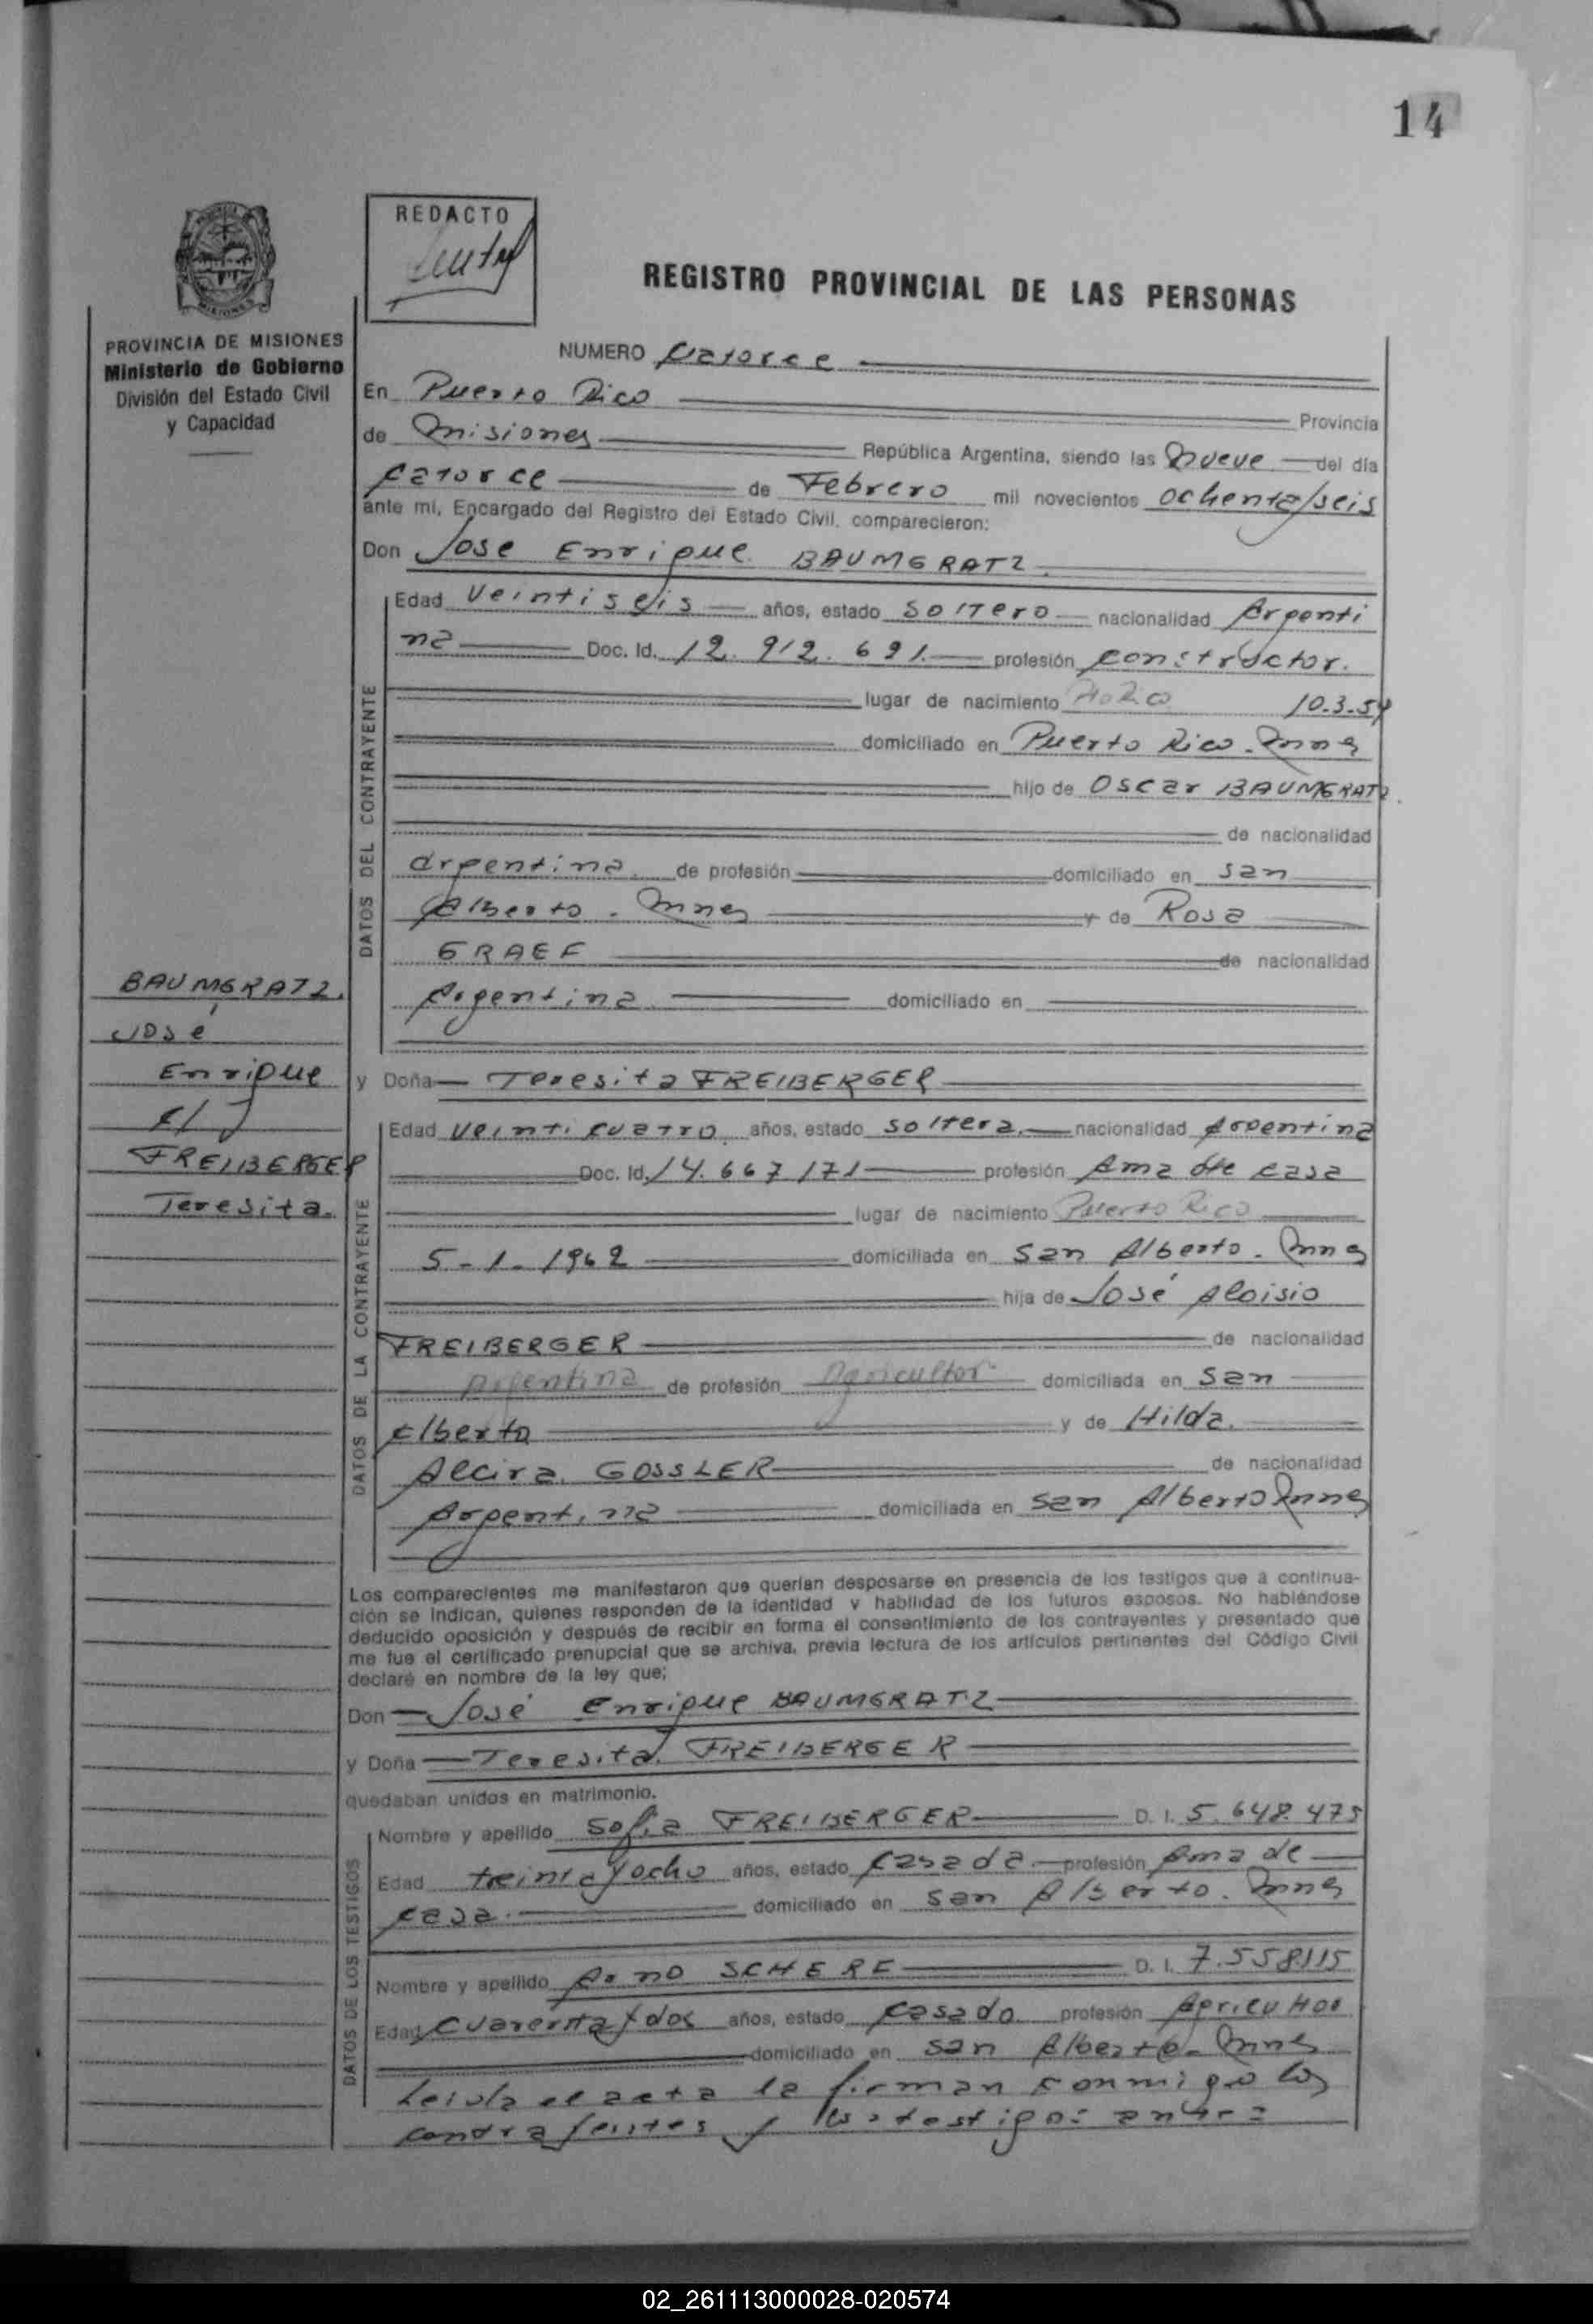 14
REDACTO
REGISTRO PROVINCIAL DE LAS PERSONAS
MISIONES
PROVINCIA DE MISIONES
Ministerio de Gobierno
División del Estado Civil
y Capacidad
NUMERO Catorce
En Puerto Rico Provincia
de Misiones República Argentina, siendo las Nueve del día
catorce de Febrero mil novecientos ochenta/seis
ante mi, Encargado del Registro del Estado Civil, comparecieron:
Don Jose Enrique BAUMGRATZ.
Edad Veintiseis años, estado Soltero nacionalidad Argenti
na Doc. Id. 12.912.691. profesión constructor.
lugar de nacimiento Pto Rico 10.3.59
domiciliado en Puerto Rico. Mnes
hijo de Oscar BAUMGRATZ.
de nacionalidad
Argentina. de profesión domiciliado en San
Alberto. Mnes y de Rosa
GRAEF de nacionalidad
Argentina domiciliado en
DATOS DEL CONTRAYENTE
BAUMGRATZ,
José
Enrique
c/
FREIBERGER
Teresita.
y Doña Teresita FREIBERGER
Edad Veinticuatro años, estado soltera. nacionalidad Argentina
Doc. Id. 14.667171 profesión Ama de casa
lugar de nacimiento Puerto Rico
5-1-1962 domiciliada en San Alberto. Mnes
hija de José Aloisio
FREIBERGER de nacionalidad
Argentina de profesión Agricultor domiciliada en San
Alberto y de Hilda.
Alcira. GOSSLER de nacionalidad
Argentina domiciliada en San Alberto Mnes
DATOS DE LA CONTRAYENTE
Los comparecientes me manifestaron que querían desposarse en presencia de los testigos que a continua-
ción se indican, quienes responden de la identidad y habilidad de los futuros esposos. No habiéndose
deducido oposición y después de recibir en forma el consentimiento de los contrayentes y presentado que
me fue el certificado prenupcial que se archiva, previa lectura de los artículos pertinentes del Código Civil
declaré en nombre de la ley que;
Don José Enrique BAUMGRATZ
y Doña Teresita FREIBERGER
quedaban unidos en matrimonio.
Nombre y apellido Sofia FREIBERGER D. I. 5.648.475
Edad treinta y ocho años, estado casada profesión Ama de
casa. domiciliado en San Alberto. Mnes
Nombre y apellido Arno SCHERF D. I. 7.558115
Edad Cuarenta y dos años, estado casado. profesión Agricultor
domiciliado en San Alberto. Mnes
DATOS DE LOS TESTIGOS
Leida el acta la firman conmigo los
contrayentes y los testigos antes
02_261113000028-020574